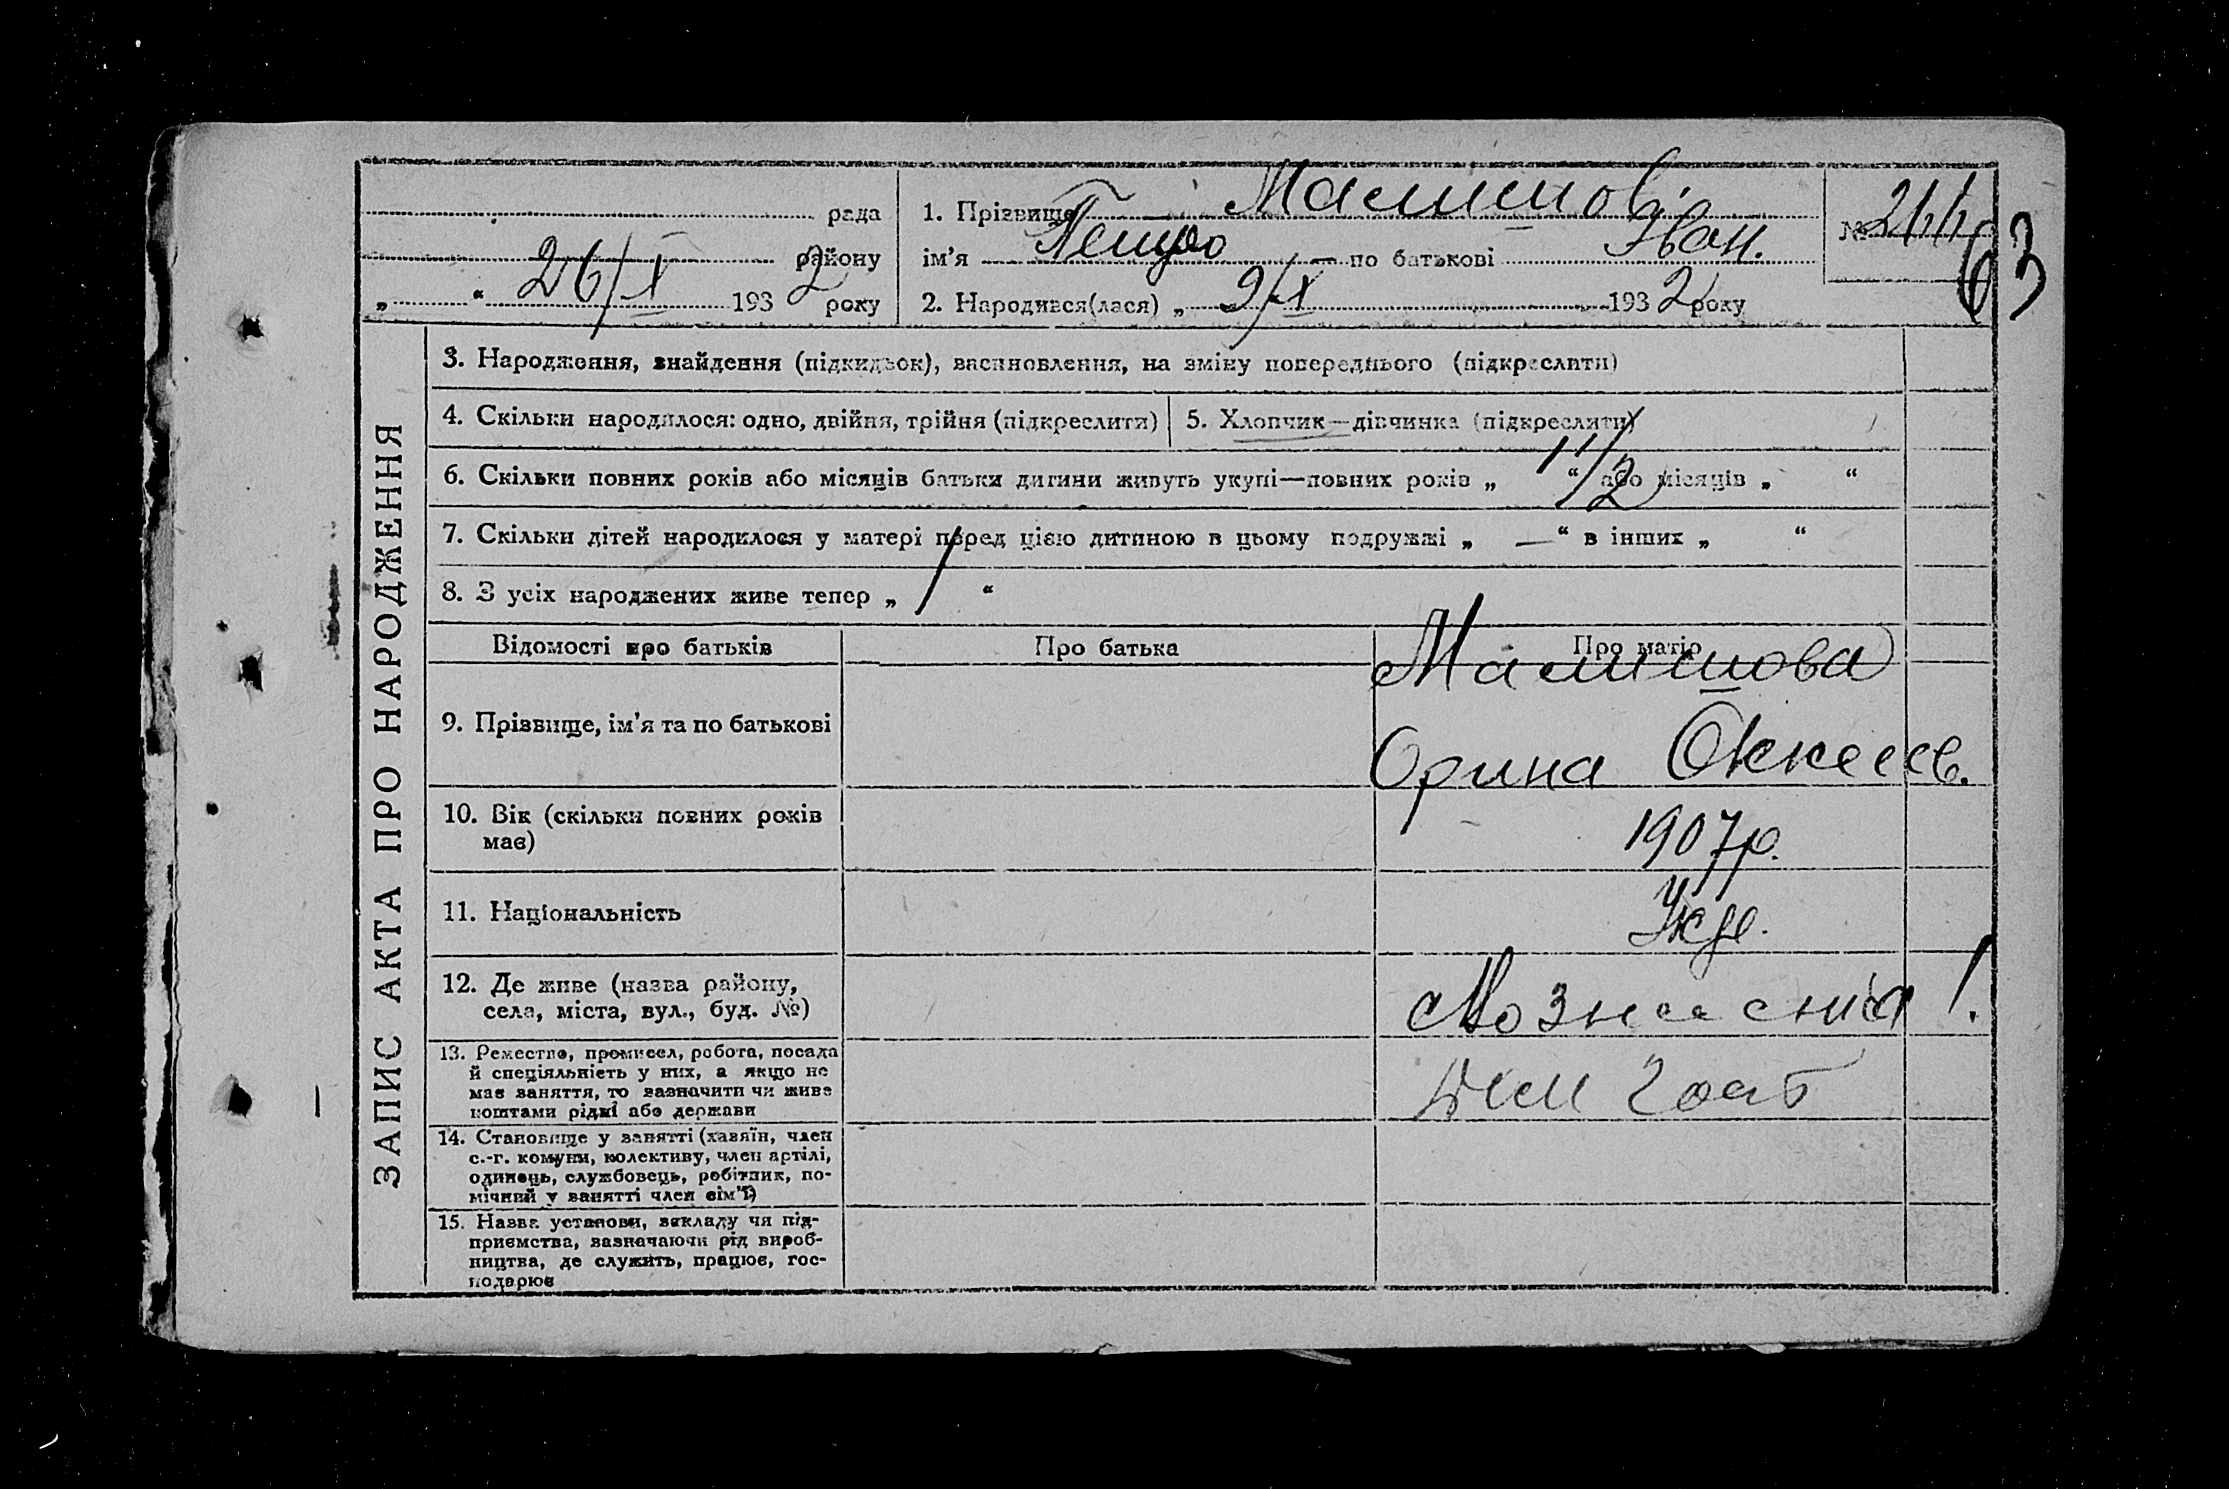 рада
району
26/X 1932 року
1. Прізвище Малишов
ім'я Петро по батькові Іван.
2. Народився(лася) „ 9/X 1932 року
№
63
ЗАПИС АКТА ПРО НАРОДЖЕННЯ
3. Народження, знайдення (підкидьок), васиновлення, на зміну попереднього (підкреслити)
4. Скільки народилося: одно, двійня, трійня (підкреслити)
5. Хлопчик—дівчинка (підкреслити)
6. Скільки повних років або місяців батьки дитини живуть укупі—повних років „ “ або місяців „ “
7. Скільки дітей народилося у матері перед цією дитиною в цьому подружжі „ — “ в інших „ “
8. З усіх народжених живе тепер „ / “
Відомості про батьків
Про батька
Про матір
9. Прізвище, ім'я та по батькові
Малишова
Орина
10. Вік (скільки повних років
має)
1907р.
11. Національність
Укр.
12. Де живе (назва району,
села, міста, вул., буд. №)
13. Ремество, промисел, робота, посада
й спеціяльність у них, а якщо не
має заняття, то зазначити чи живе
коштами рідні або держави
14. Становище у занятті (хазяїн, член
с.-г. комуни, колективу, член артілі,
одинець, службовець, робітник, по-
мічний у занятті член сім'ї)
15. Назва установи, закладу чи під-
приємства, зазначаючи рід вироб-
ництва, де служить, працює, гос-
подарює